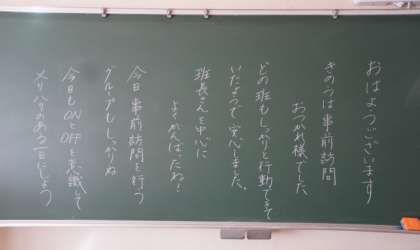 おはようございます
きのうは事前訪問
おつかれ様でした
どの班もしっかりと行動できて
いたようで安心しました。
班長さんを中心に
よくがんばったね!
今日 事前訪問を行う
グループもしっかりね
今日もONとOFFを意識して
メリハリのある一日にしよう